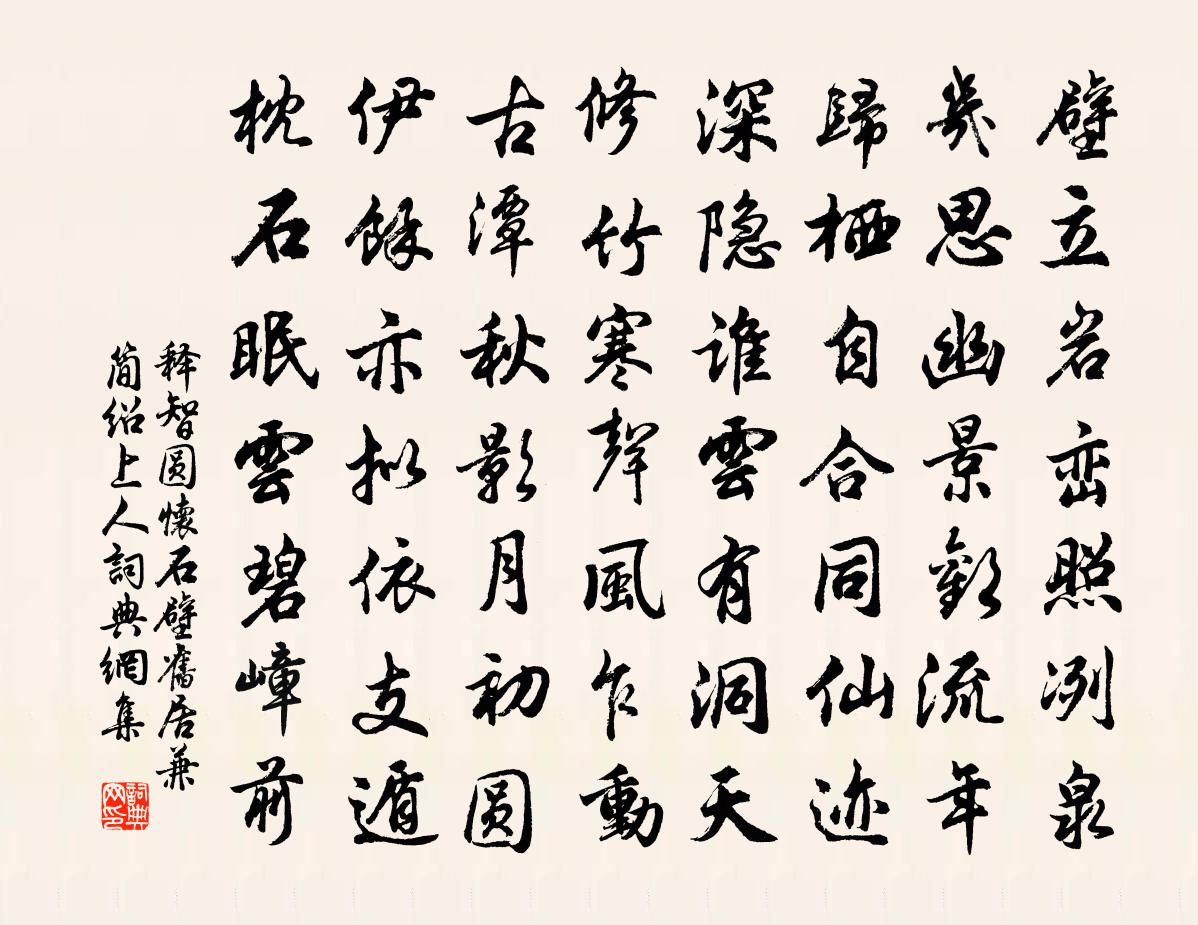 壁立岩峦照冽泉
岁思幽景欢流年
歸栖自合同仙迹
深隐谁雲有洞天
修竹寒聲風乍動
古潭秋影月初圆
伊餘亦拟依支遁
枕石眠雲碧嶂前
释智圆懷石壁舊居兼
简绍上人詞典網集
詞典网印